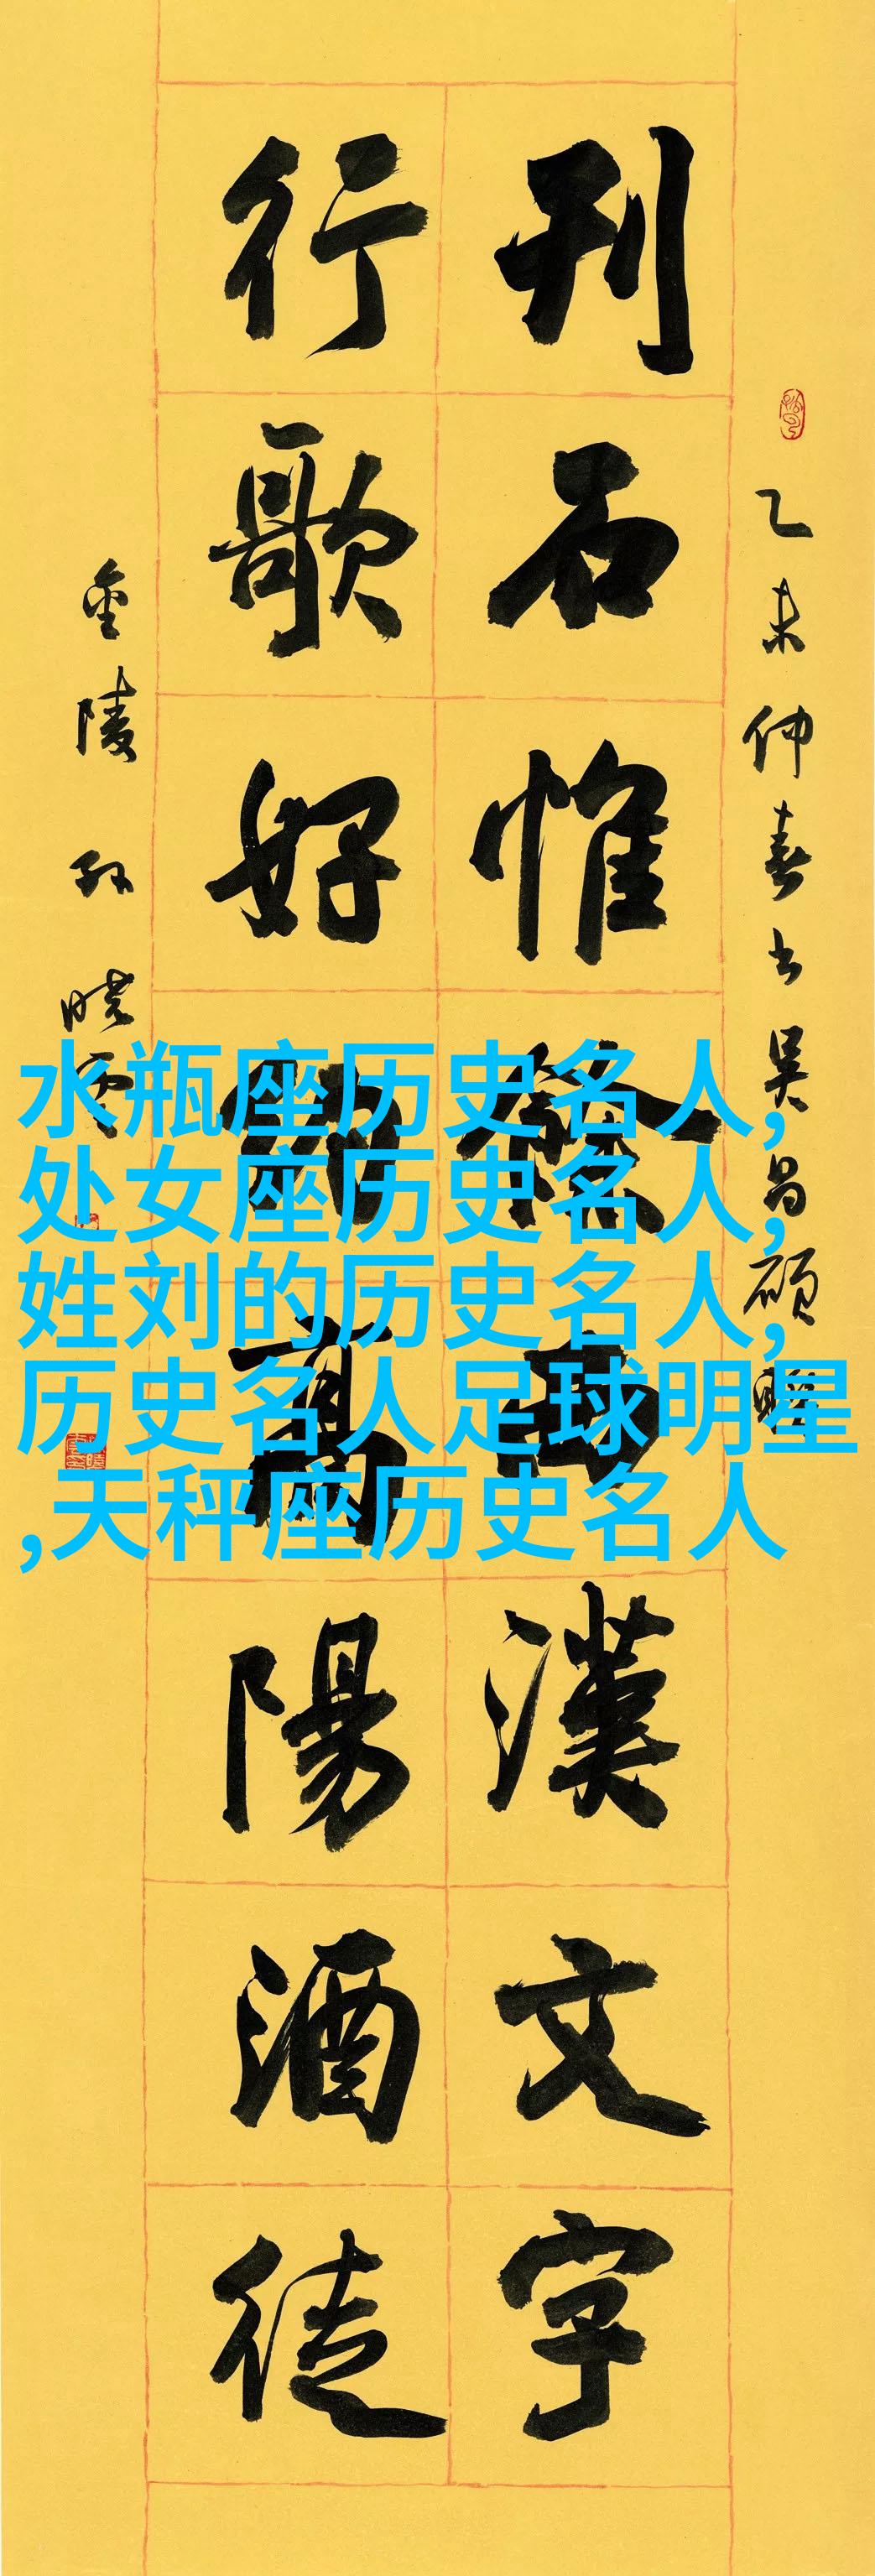 乙未仲春书吴昌硕联
刊石惟馀西漢文字
行歌好
陽酒徒
金陵孙晓云
水瓶座历史名人,
处女座历史名人,
姓刘的历史名人,
历史名人足球明星
,天秤座历史名人